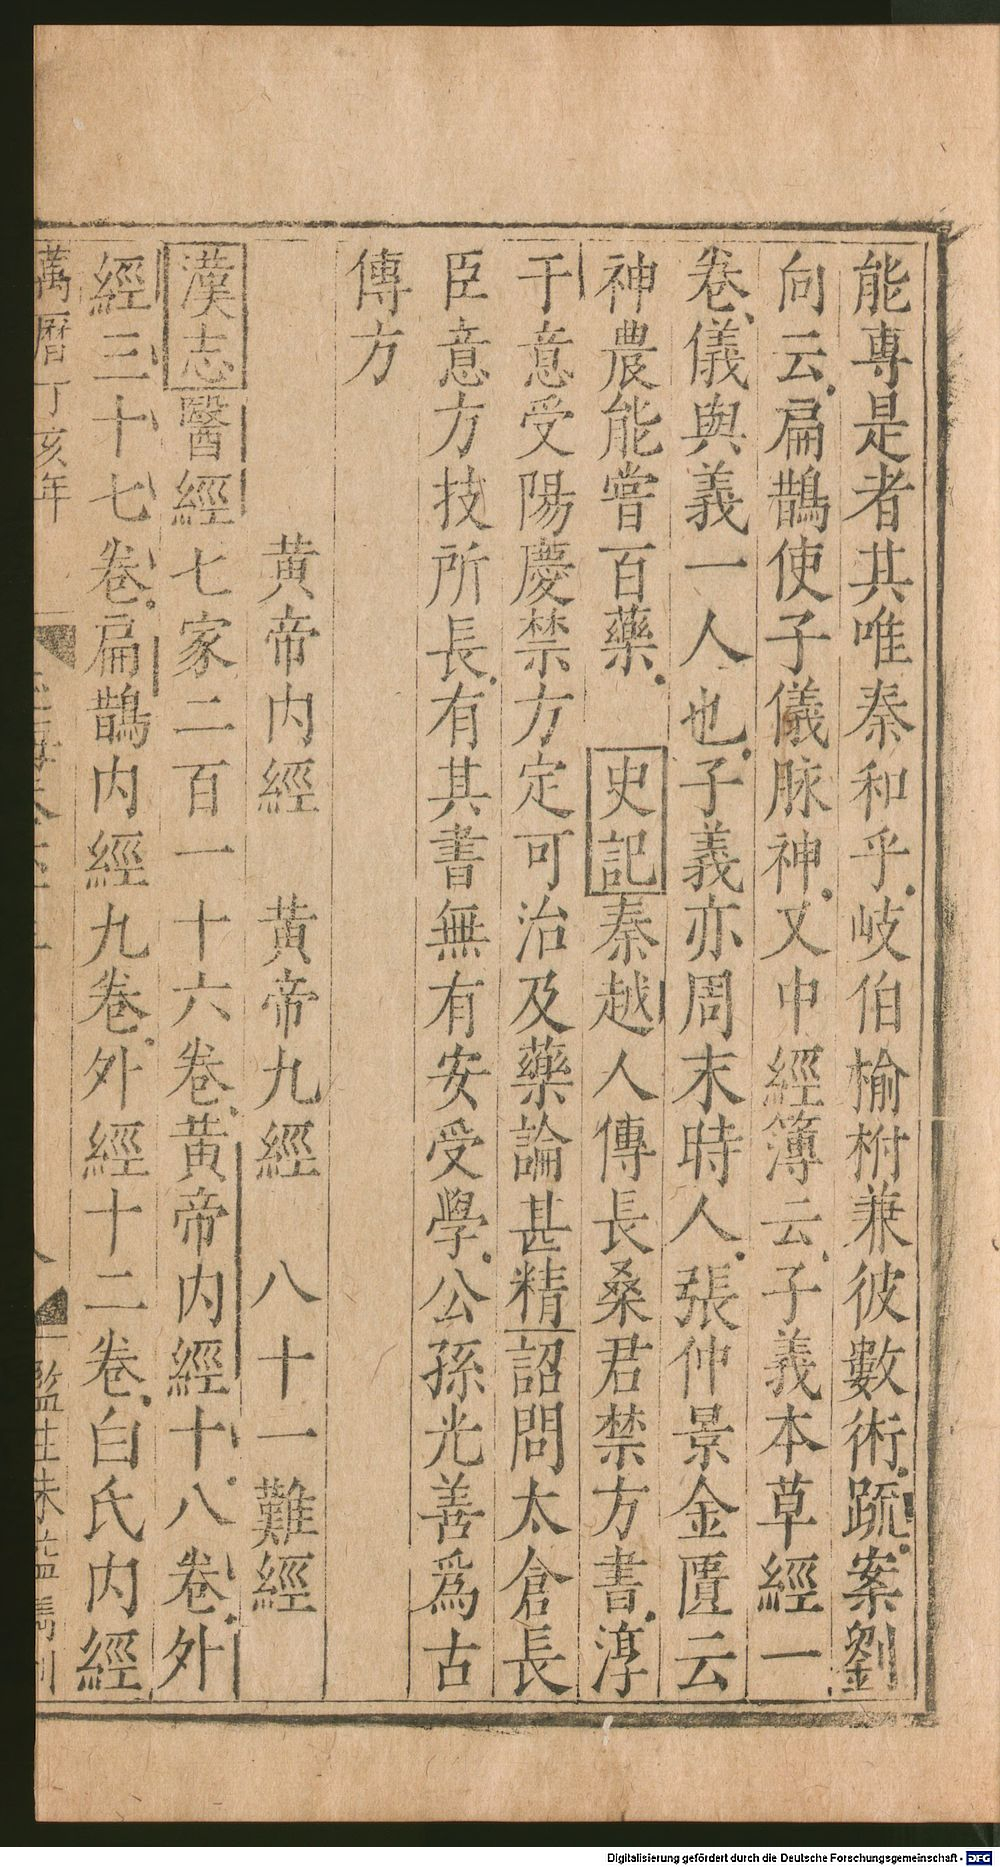 能專是者其唯秦和乎岐伯榆柎兼彼數術疏案劉
向云扁鵲使子儀脉神又中經簿云子義本草經一
卷儀與義一人也子義亦周末時人張仲景金匱云
神農能嘗百藥 史記秦越人傳長桑君禁方書淳
于意受陽慶禁方定可治及藥論甚精詔問太倉長
臣意方技所長有其書無有安受學公孫光善爲古
傳方
黄帝内經 黄帝九經 八十一難經
漢志醫經七家二百一十六卷黄帝内經十八卷外
經三十七卷扁鵲内經九卷外經十二卷白氏内經
萬曆丁亥年
Digitalisierung gefördert durch die Deutsche Forschungsgemeinschaft - DFG